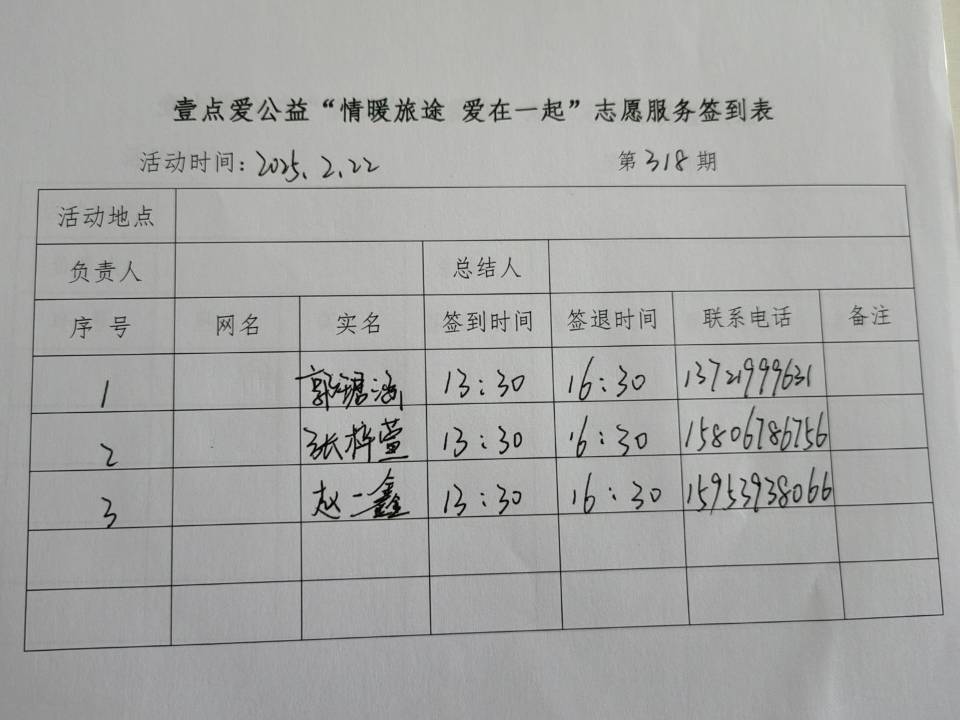 壹点爱公益“情暖旅途 爱在一起”志愿服务签到表
活动时间：2025.2.22 第318期
活动地点
负责人 总结人
序号 网名 实名 签到时间 签退时间 联系电话 备注
1 郭珺涵 13:30 16:30 13721999631
2 张梓萱 13:30 16:30 15806786756
3 赵一鑫 13:30 16:30 15953938066